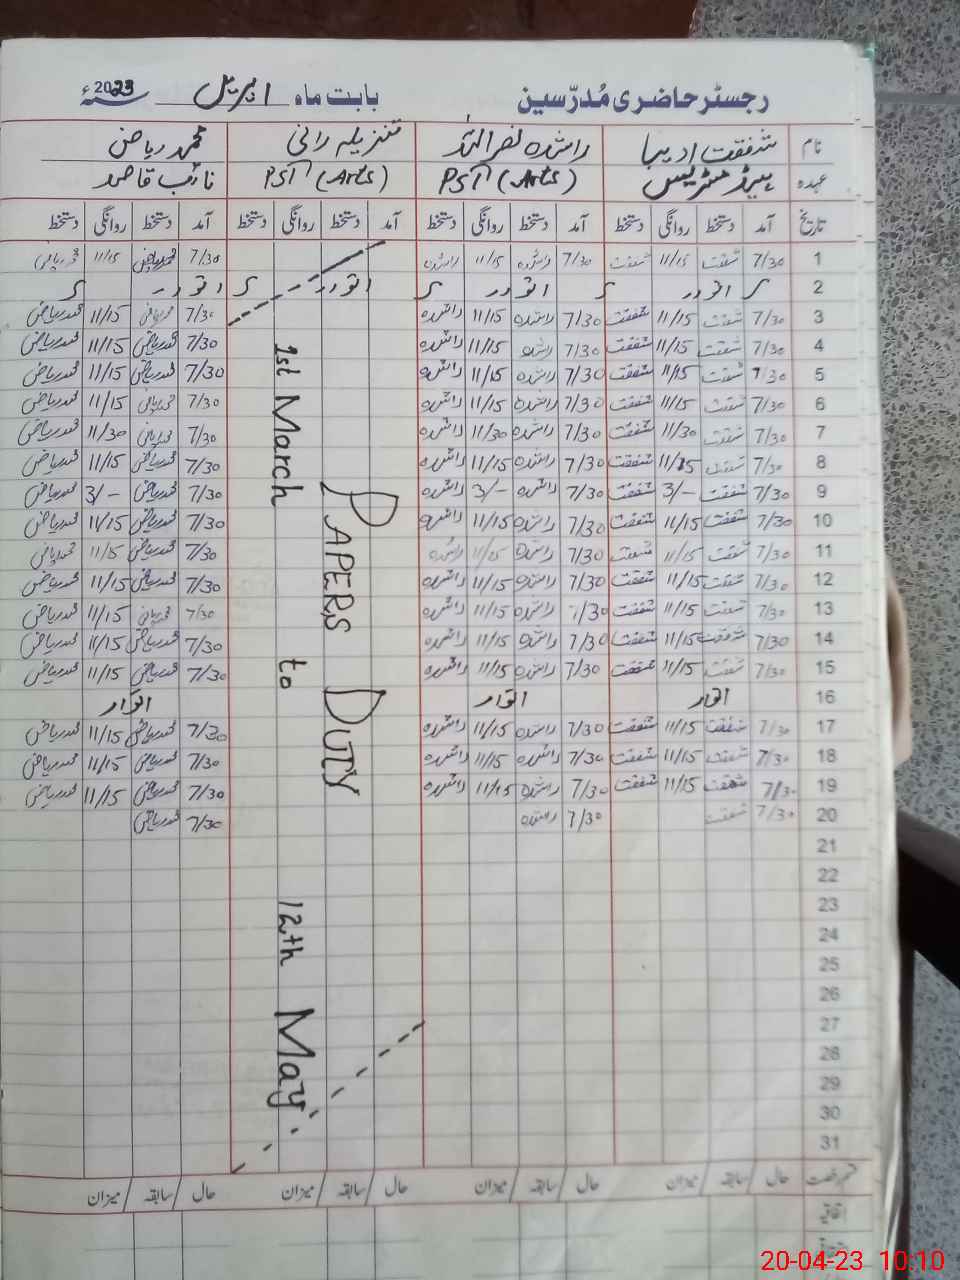 رجسٹر حاضری مُدرّسین بابت ماہ اپریل 2023ء
نام شفقت ادیبا راشدہ نصراللہ تنزیلہ رانی محمد ریاض
عہدہ ہیڈ مسٹریس PST (Arts) PST (Arts) نائب قاصد
تاریخ آمد دستخط روانگی دستخط آمد دستخط روانگی دستخط آمد دستخط روانگی دستخط آمد دستخط روانگی دستخط
1 7/30 شفقت 11/15 شفقت 7/30 راشدہ 11/15 راشدہ 7/30 محمد ریاض 11/15 محمد ریاض
2 اتوار اتوار اتوار اتوار
3 7/30 شفقت 11/15 شفقت 7/30 راشدہ 11/15 راشدہ 7/30 محمد ریاض 11/15 محمد ریاض
4 7/30 شفقت 11/15 شفقت 7/30 راشدہ 11/15 راشدہ 7/30 محمد ریاض 11/15 محمد ریاض
5 7/30 شفقت 11/15 شفقت 7/30 راشدہ 11/15 راشدہ 7/30 محمد ریاض 11/15 محمد ریاض
6 7/30 شفقت 11/15 شفقت 7/30 راشدہ 11/15 راشدہ 7/30 محمد ریاض 11/15 محمد ریاض
7 7/30 شفقت 11/30 شفقت 7/30 راشدہ 11/30 راشدہ 7/30 محمد ریاض 11/30 محمد ریاض
8 7/30 شفقت 11/15 شفقت 7/30 راشدہ 11/15 راشدہ 7/30 محمد ریاض 11/15 محمد ریاض
9 7/30 شفقت 3/- شفقت 7/30 راشدہ 3/- راشدہ 7/30 محمد ریاض 3/- محمد ریاض
10 7/30 شفقت 11/15 شفقت 7/30 راشدہ 11/15 راشدہ 7/30 محمد ریاض 11/15 محمد ریاض
11 7/30 شفقت 11/15 شفقت 7/30 راشدہ 11/15 راشدہ 7/30 محمد ریاض 11/15 محمد ریاض
12 7/30 شفقت 11/15 شفقت 7/30 راشدہ 11/15 راشدہ 7/30 محمد ریاض 11/15 محمد ریاض
13 7/30 شفقت 11/15 شفقت 7/30 راشدہ 11/15 راشدہ 7/30 محمد ریاض 11/15 محمد ریاض
14 7/30 شفقت 11/15 شفقت 7/30 راشدہ 11/15 راشدہ 7/30 محمد ریاض 11/15 محمد ریاض
15 7/30 شفقت 11/15 شفقت 7/30 راشدہ 11/15 راشدہ 7/30 محمد ریاض 11/15 محمد ریاض
16 اتوار اتوار اتوار
17 7/30 شفقت 11/15 شفقت 7/30 راشدہ 11/15 راشدہ 7/30 محمد ریاض 11/15 محمد ریاض
18 7/30 شفقت 11/15 شفقت 7/30 راشدہ 11/15 راشدہ 7/30 محمد ریاض 11/15 محمد ریاض
19 7/30 شفقت 11/15 شفقت 7/30 راشدہ 11/15 راشدہ 7/30 محمد ریاض 11/15 محمد ریاض
20 7/30 شفقت 7/30 راشدہ 7/30 محمد ریاض
21
22
23
24
25
26
27
28
29
30
31
PAPERS DUTY
1st March to 12th May
قسم رخصت حال / سابقہ / میزان حال / سابقہ / میزان حال / سابقہ / میزان حال / سابقہ / میزان
اتفاقیہ
20-04-23 10:10